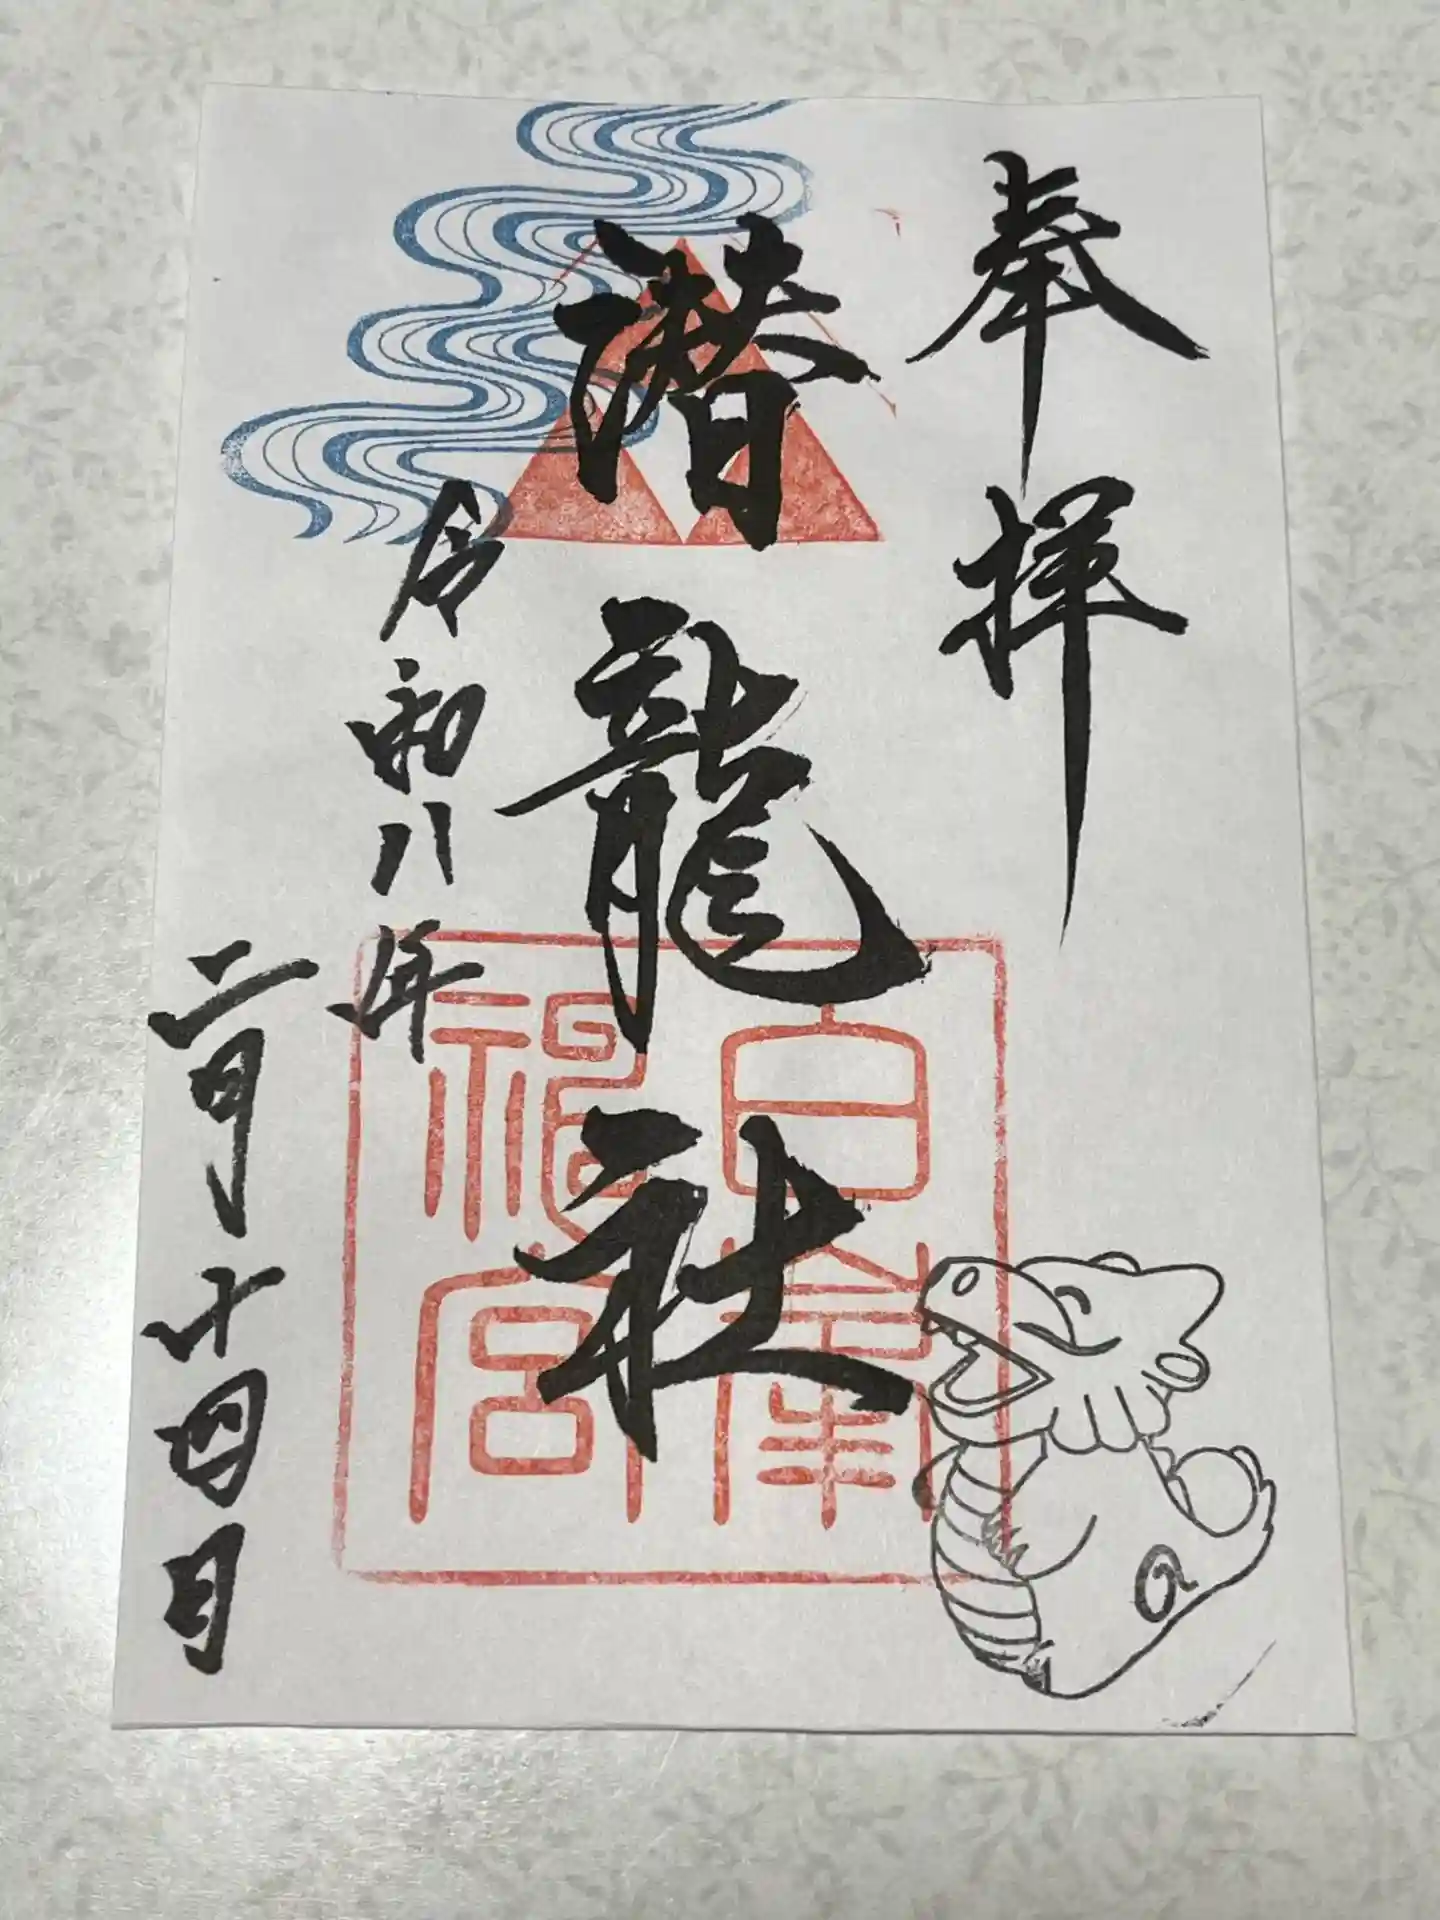 奉拝
潜龍社
白峯神宮
令和八年
二月十四日